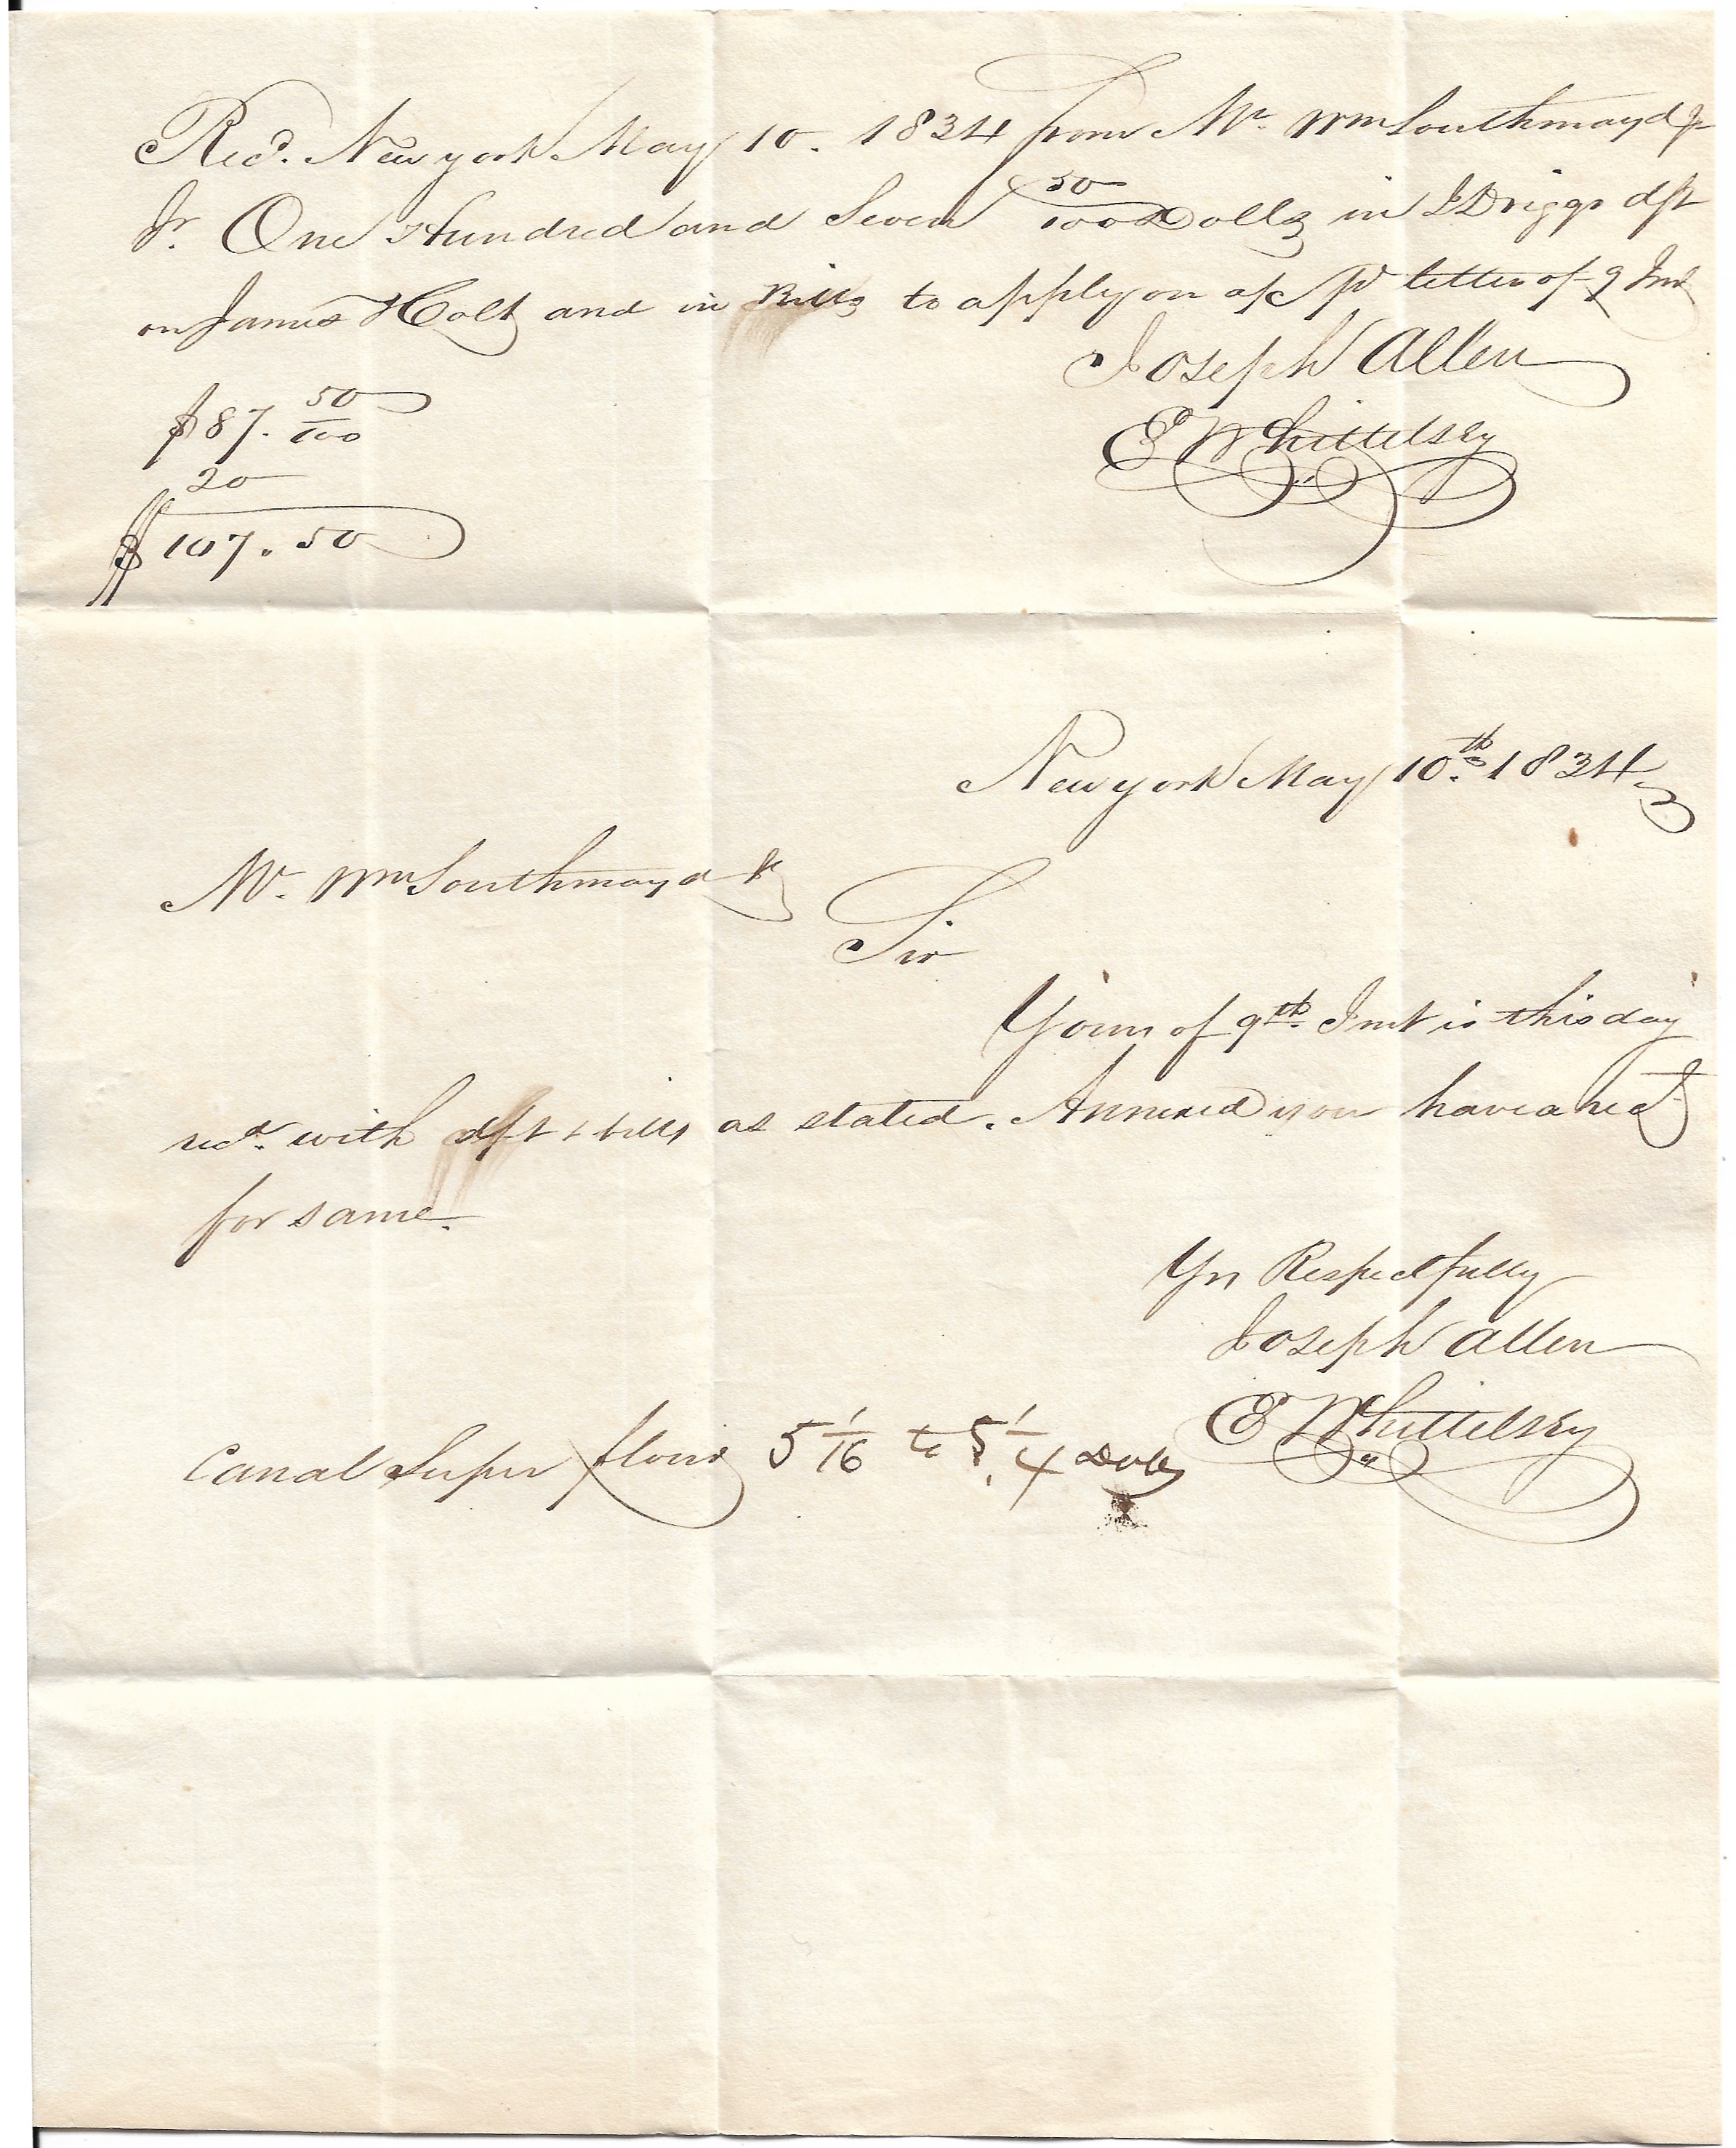 Recd. New york May 10. 1834 from Mr. Wm Southmayd Jr
Jr. One Hundred and Seven 50/100 Dolls in I Driggs dft
on James Holt and in Bills to apply on a/c pr letter of 9 Inst
Joseph Allen
E Whittelsey
$87. 50/100
20
$107.50
New york May 10th 1834
Mr. Wm Southmayd Jr
Sir
Yours of 9th Inst is this day
recd. with dft & bills as stated. Annexed you have a rect
for same.
Yrs Respectfully
Joseph Allen
E Whittelsey
Canal Super flour 5 1/16 to 5 1/4 Dolls